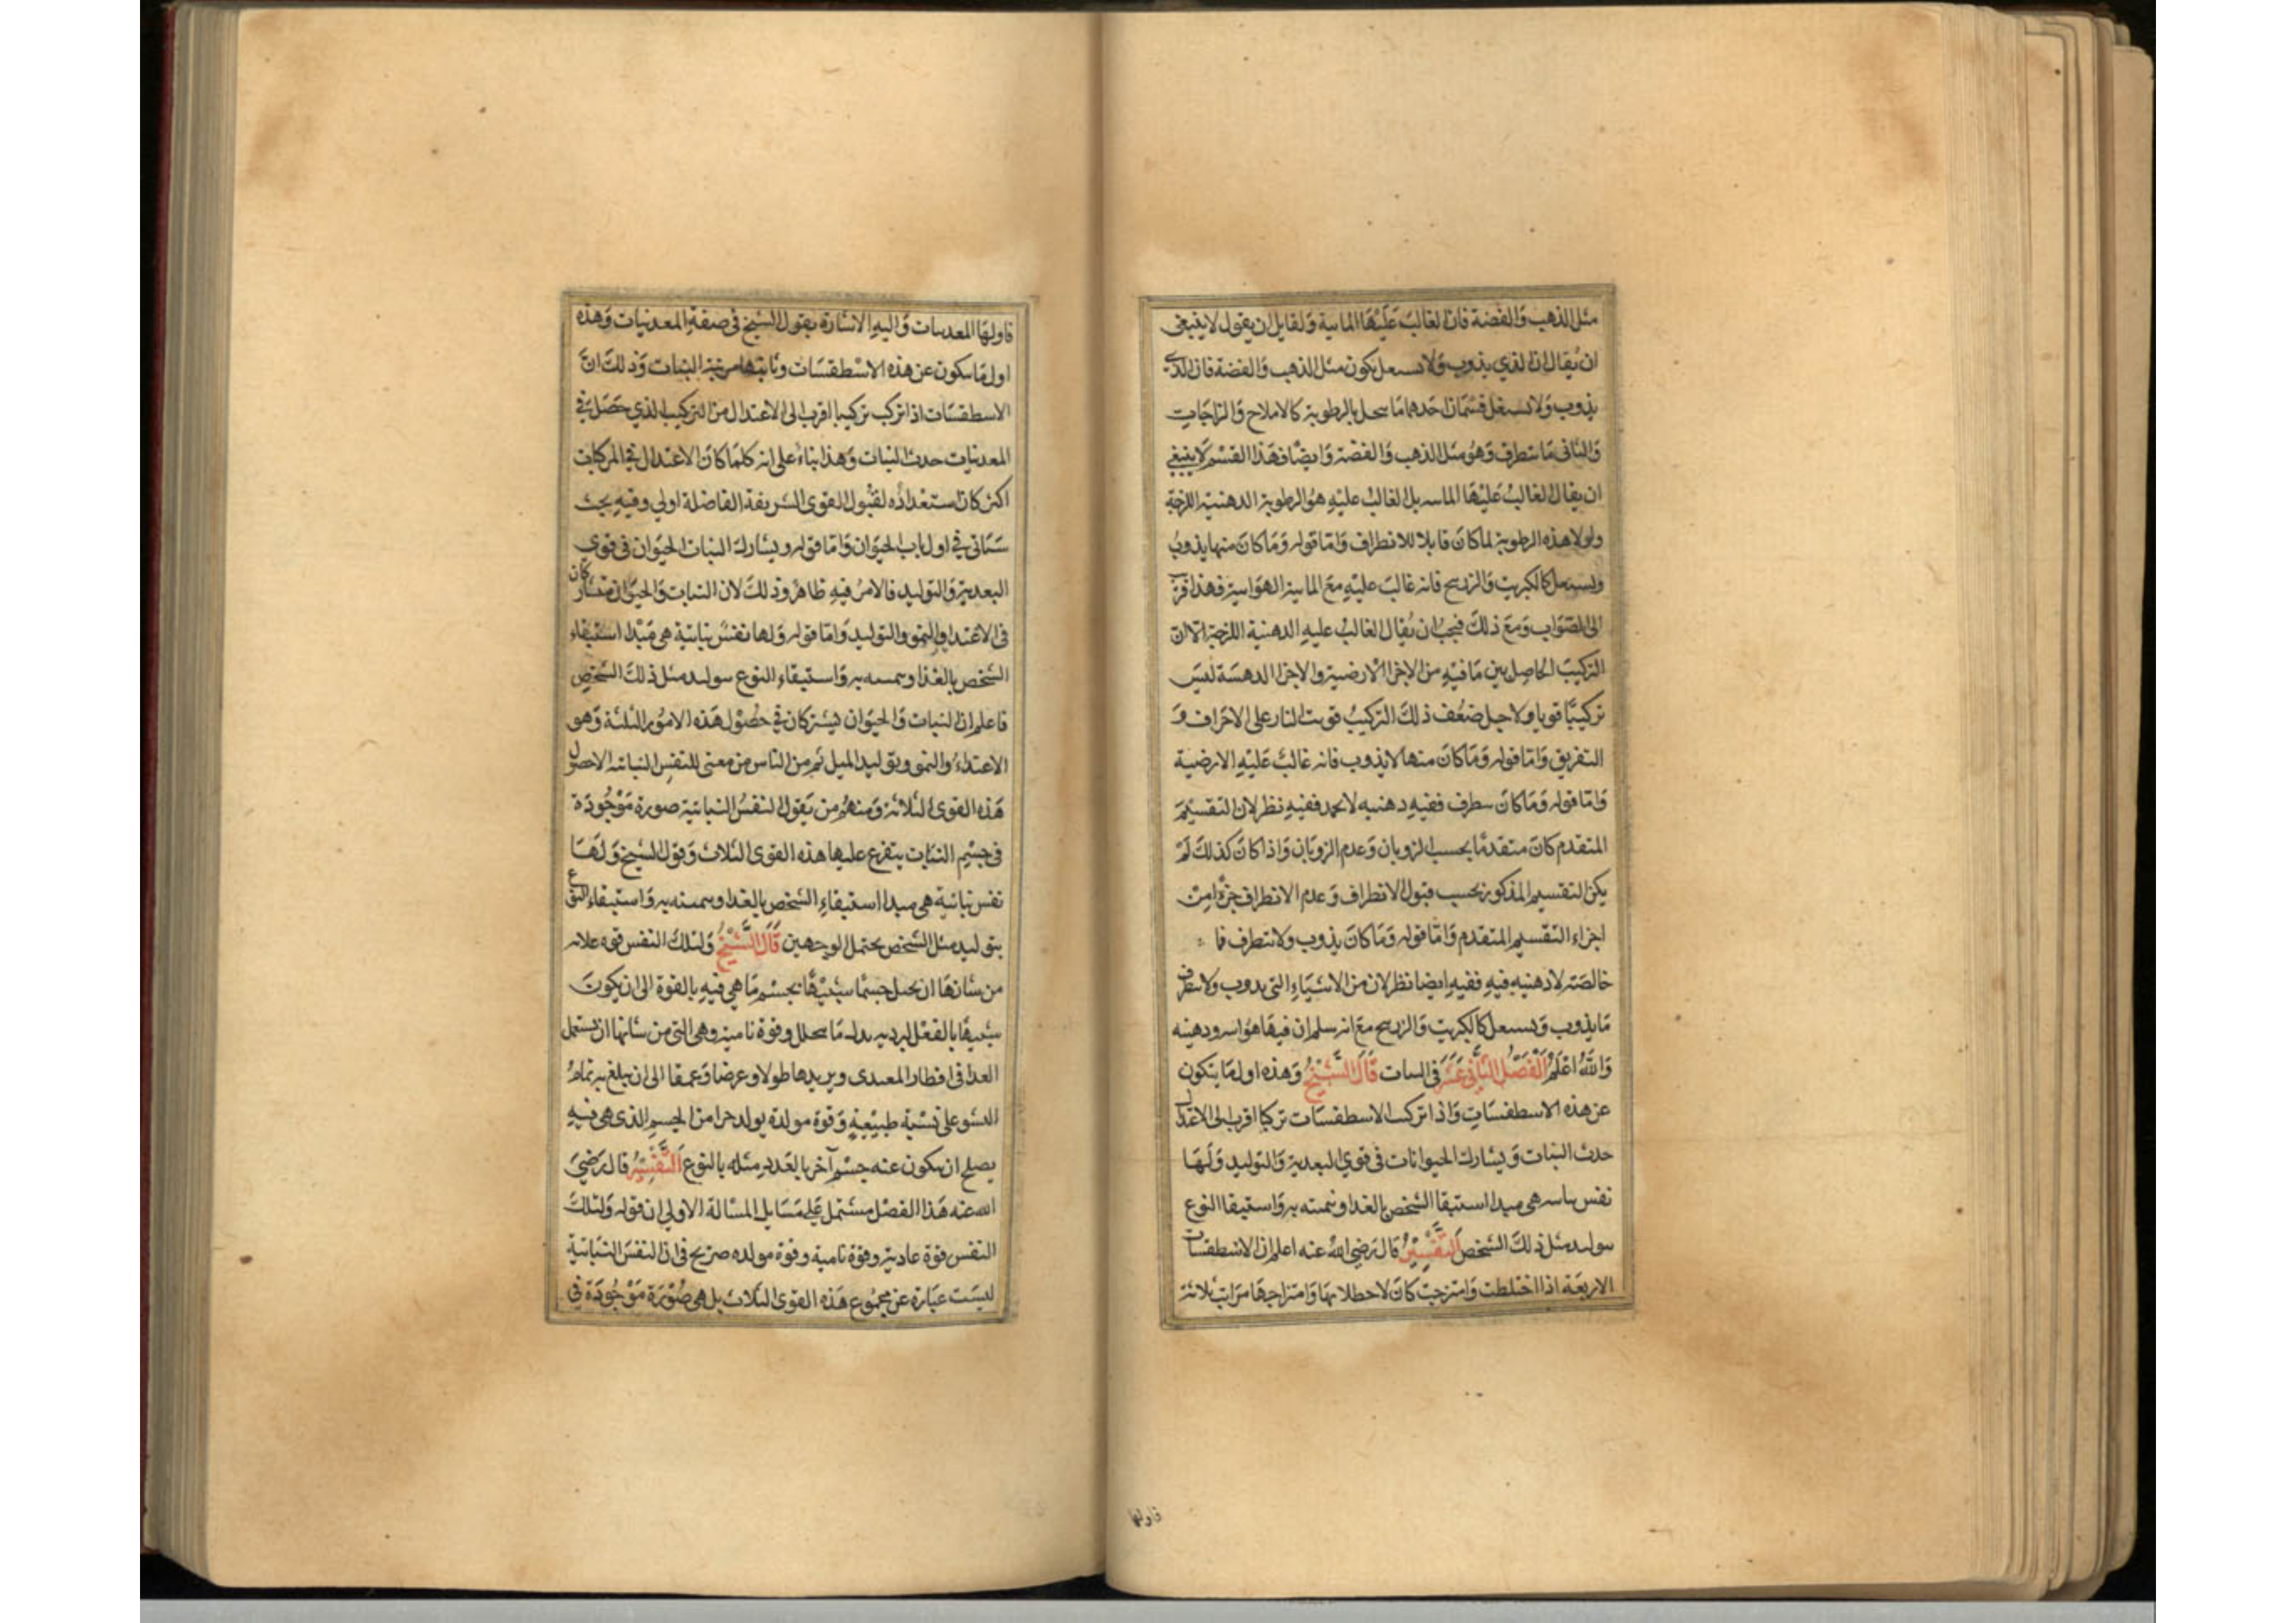 مثل الذهب والفضة فان الغالب عليها المايية ولقايل ان يقول لا ينبغي
ان يقال ان الذي يذوب ولا يشتعل يكون مثل الذهب والفضة فان الذي
يذوب ولا يشتعل قسمان احدهما ما ينحل بالرطوبة كالاملاح والزاجات
والثاني ما يتطرف وهو مثل الذهب والفضة وايضا فهذا القسم لا ينبغي
ان يقال الغالب عليها المايية بل الغالب عليه هو الرطوبة الدهنية اللزجة
ولولا هذه الرطوبة لما كان قابلا للانطراف واما قوله وما كان منها يذوب
ويشتعل كالكبريت والزرنيخ فانه غالب عليه مع المايية الهوايية فهذا قريب
الى الصواب ومع ذلك فيجب ان يقال الغالب عليه الدهنية اللزجة الا ان
التركيب الحاصل بين ما فيه من الاجزا الارضية والاجزا الدهنية ليس
تركيبا قويا ولاجل ضعف ذلك التركيب قويت النار على الاحراف و
التفريق واما قوله وما كان منها لا يذوب فانه غالب عليه الارضية
واما قوله وما كان يتطرف ففيه دهنيه لا تجمد ففيه نظر لان التقسيم
المتقدم كان متقدما بحسب الزوبان وعدم الزوبان واذا كان كذلك لم
يكن التقسيم المذكور بحسب قبول الانطراف وعدم الانطراف جزءا من
اجزاء التقسيم المتقدم واما قوله وما كان يذوب ولا يتطرف فما
خالصته لا دهنيه فيه ففيه ايضا نظر لان من الاشياء التي يذوب ولا يتطرف
ما يذوب ويشتعل كالكبريت والزرنيخ مع انه سلم ان فيها هواييه ودهنيه
والله اعلم الفصل الثاني عشر في النبات قال الشيخ وهذه اول ما يتكون
عن هذه الاسطقسات واذا تركبت الاسطقسات تركيبا اقرب الى الاعتدال
حدث النبات ويشارك الحيوانات في قوي التغدية والتوليد ولها
نفس نباتيه هي مبدا استبقا الشخص بالغدا وتنميته به واستبقا النوع
بتوليد مثل ذلك الشخص التفسير قال رضي الله عنه اعلم ان الاسطقسات
الاربعة اذا اختلطت وامتزجت كان لاختلاطها وامتزاجها مراتب ثلاثة
فاولها
فاولها المعدنيات واليه الاشارة بقول الشيخ في صفة المعدنيات وهذه
اول ما يتكون عن هذه الاسطقسات وثانيتها مرتبة النبات وذلك ان
الاسطقسات اذا تركب تركيبا اقرب الى الاعتدال من التركيب الذي حصل في
المعدنيات حدث النبات وهذا بناء على انه كلما كان الاعتدال في المركبات
اكثر كان استعداده لقبول القوى الشريفة الفاضلة اولي وفيه بحث
سياتي في اول باب الحيوان واما قوله ويشارك النبات الحيوان في قوي
التغدية والتوليد فالامر فيه ظاهر وذلك لان النبات والحيوان متشاركان
في الاغتدا والنمو والتوليد واما قوله ولها نفس نباتية هي مبدا استبقاء
الشخص بالغذا وتنميته به واستبقاء النوع بتوليد مثل ذلك الشخص
فاعلم ان النبات والحيوان يشتركان في حصول هذه الامور الثلثة وهو
الاغتداء والنمو وتوليد المثل ثم من الناس من معنى للنفس النباتيه الا حصول
هذه القوى الثلاثة ومنهم من يقول النفس النباتية صورة موجودة
في جسم النبات يتفرع عليها هذه القوى الثلاث وقول الشيخ ولها
نفس نباتية هي مبدا استبقاء الشخص بالغدا وتنميته به واستبقاء النوع
بتوليد مثل الشخص يحتمل الوجهين قال الشيخ ولتلك النفس قوه غاذيه
من شانها ان تحيل جسما شبيها بجسم ما هي فيه بالقوة الى ان يكون
شبيها بالفعل ليرد به بدل ما يتحلل وقوة نامية وهي التي من شانها ان تستعمل
الغدا في اقطار المغتدى ويريدها طولا وعرضا وعمقا الى ان يبلغ به تمام
النشو على نسبة طبيعية وقوة مولدة يولد جزا من الجسم الذى هي فيه
يصلح ان يتكون عنه جسم آخر بالعدد مثله بالنوع التفسير قال رضي
الله عنه هذا الفصل مشتمل على مسايل المسالة الاولي ان قوله ولتلك
النفس قوة غادية وقوة نامية وقوة مولده صريح في ان النفس النباتية
ليست عبارة عن مجموع هذه القوى الثلاث بل هي صورة موجودة في